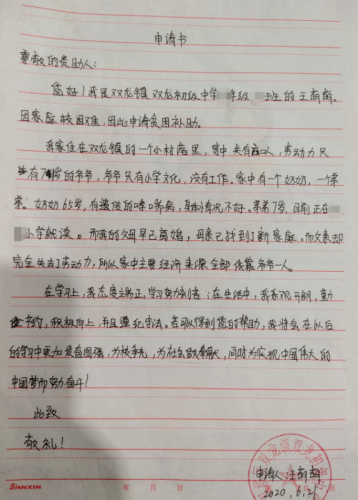 申请书
尊敬的资助人：
您好！我是双龙镇双龙初级中学 年级 班的王萌萌。
因家庭较困难，因此申请贫困补助。
我家住在双龙镇的一个小村庄里，家中共有 口人，劳动力只
有 岁的爷爷，爷爷只有小学文化，没有工作。家中有个奶奶，一个弟
弟。奶奶65岁，有 的哮喘病，身体情况不好。弟弟7岁，目前正在
小学就读。而我的父母早已离婚，母亲已找到了新家庭。而父亲却
完全失去了劳动力，所以家中主要经济来源全部依靠爷爷一人。
在学习上，我态度端正，学习努力刻苦；在生活中，我乐观开朗，勤
俭节约，积极向上，并且遵纪守法。若可以得到您的帮助，我将会在以后
的学习中更加发奋图强，为校争光，为社会做贡献，同时为实现中国伟大的
中国梦而努力奋斗！
此致
敬礼！
申请人：王萌萌
2020.6.21
SIANXIN 年 月 日